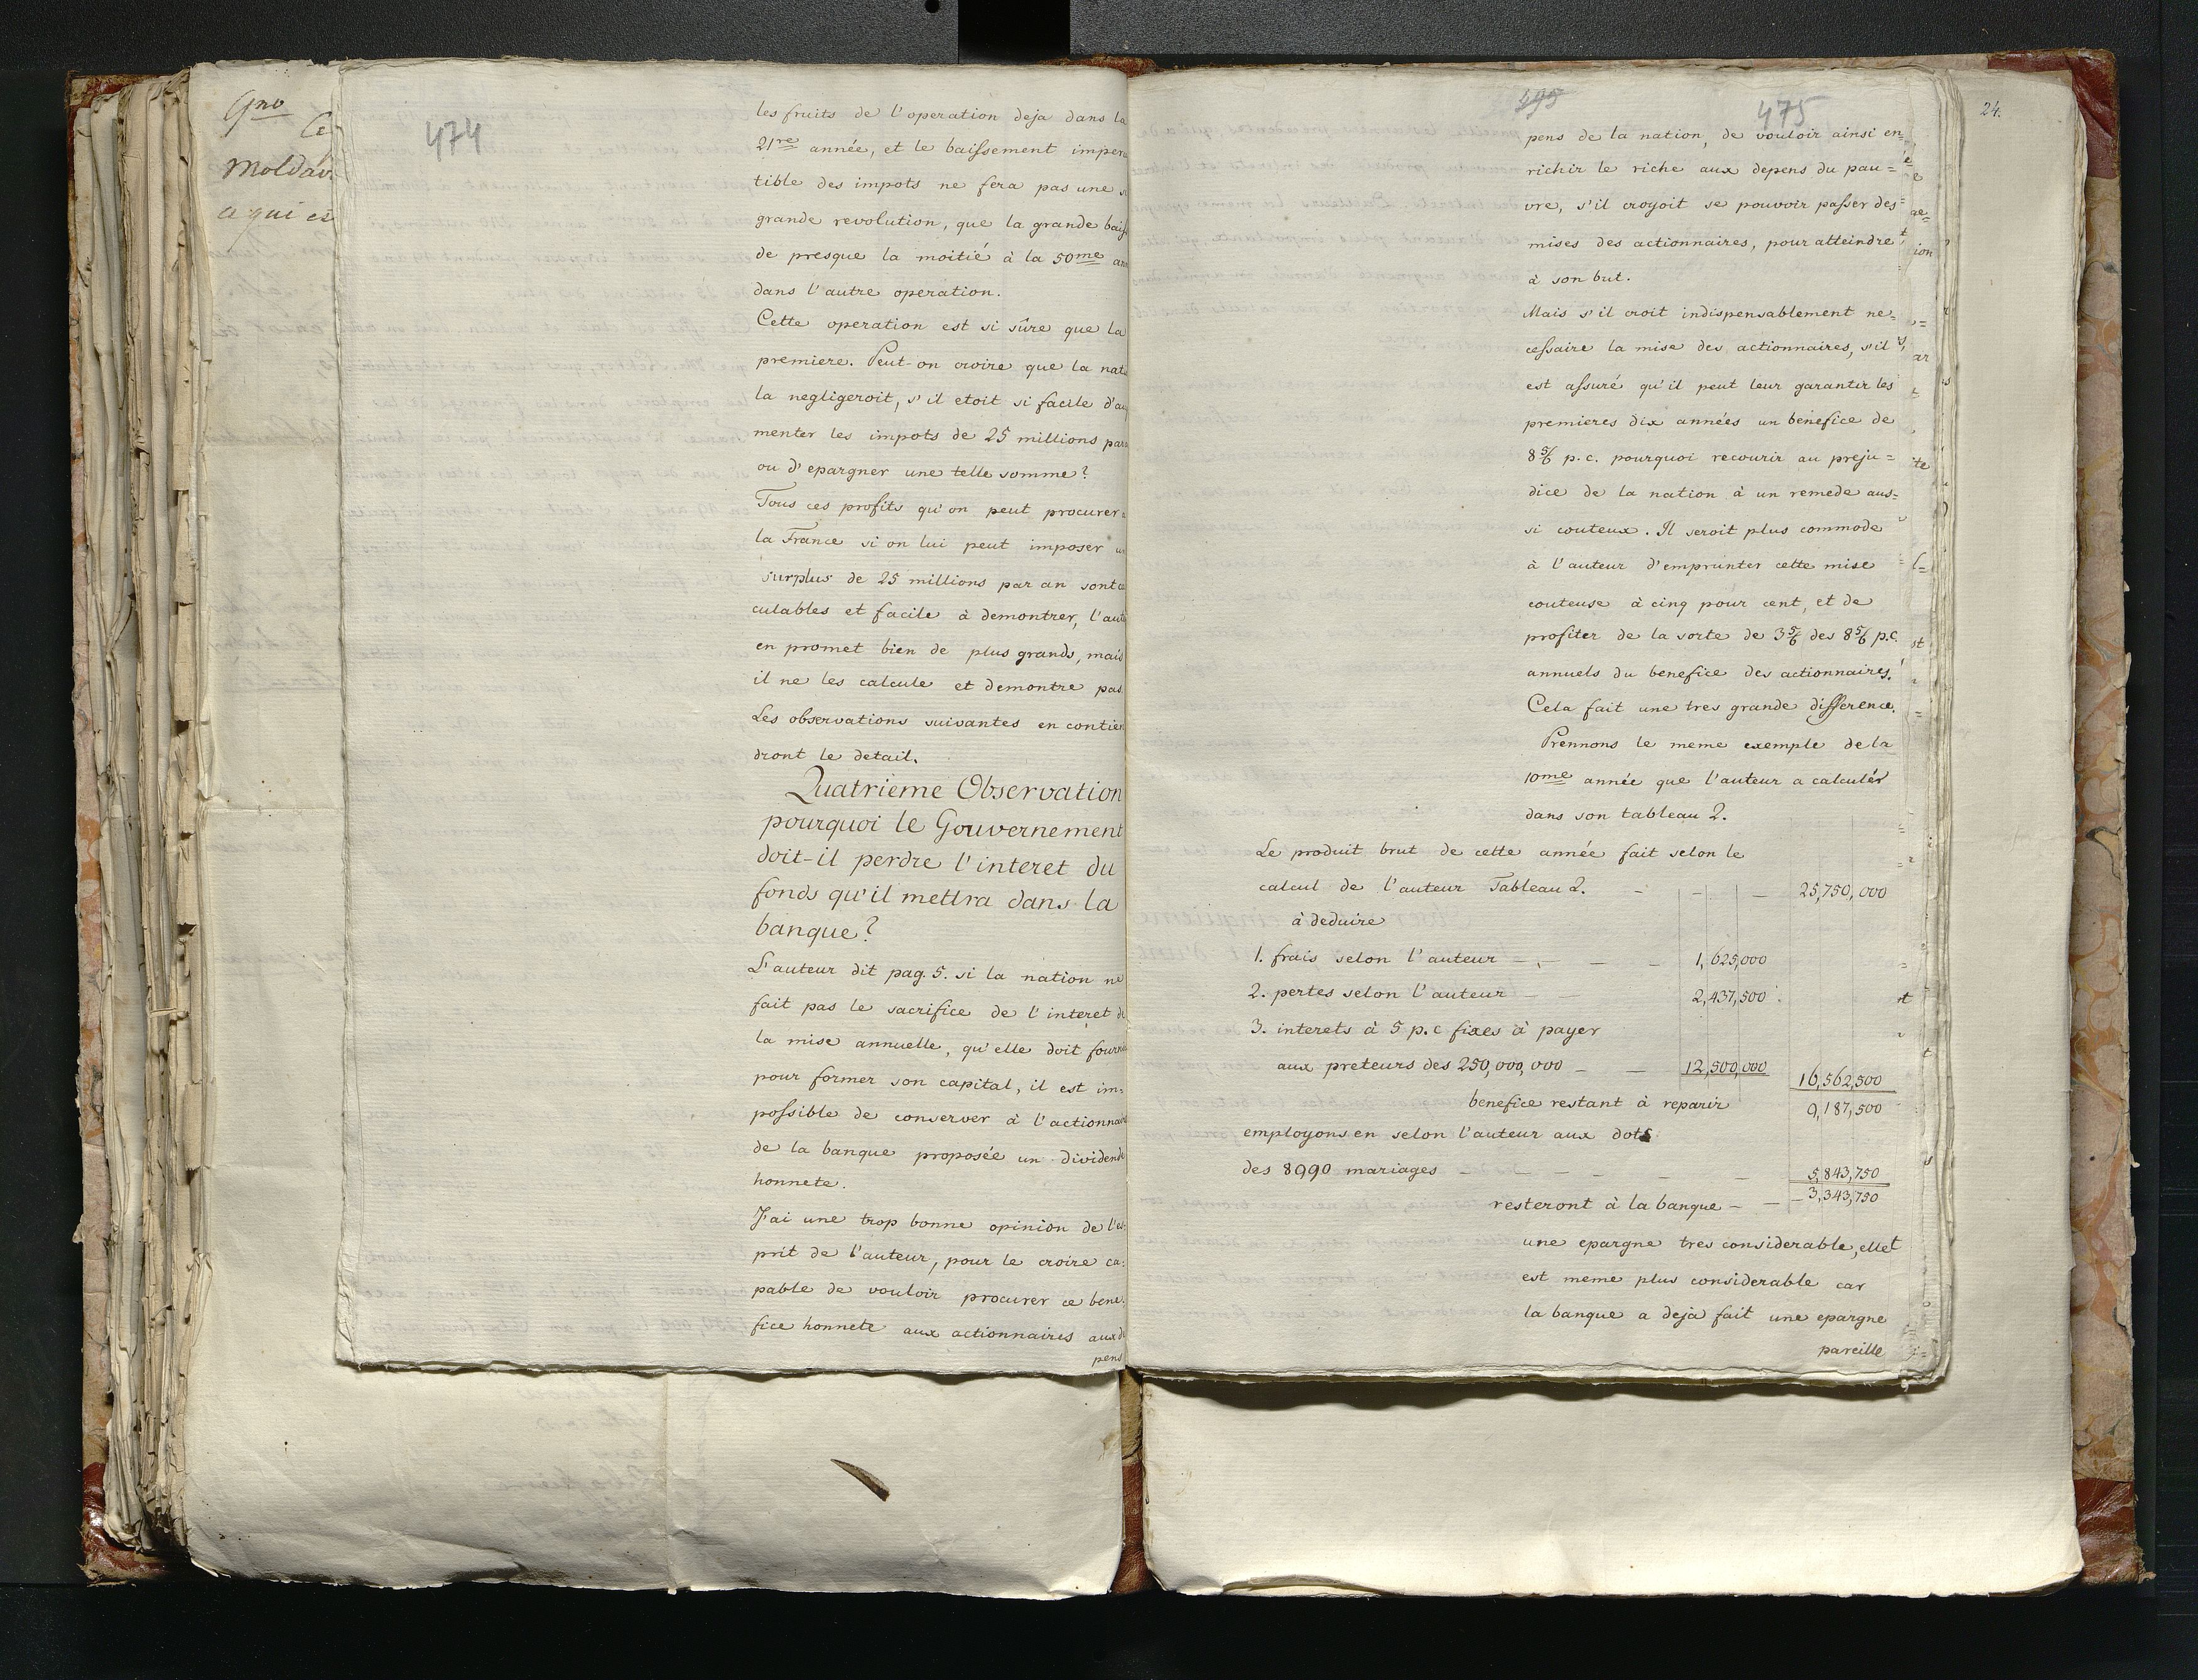 474
les fruits de l'operation deja dans la
21re année, et le baissement imper
tible des impots ne fera pas une
grande revolution, que la grande bais
de presque la moitié à la 50me an
dans l'autre operation.
Cette operation est si sûre que la
premiere. Peut-on croire que la nati
la negligeroit, s'il etoit si facile d'au
menter les impots de 25 millions par
ou d'epargner une telle somme?
Tous ces profits qu'on peut procurer
la France si on lui peut imposer un
surplus de 25 millions par an sont
culables et facile à demontrer, l'aut
en promet bien de plus grands, mais
il ne les calcule et demontre pas.
Les observations suivantes en contien
dront le detail.
Quatrieme Observation
pourquoi le Gouvernement
doit-il perdre l'interet du
fonds qu'il mettra dans la
banque?
L'auteur dit pag. 5. si la nation ne
fait pas le sacrifice de l'interet de
la mise annuelle, qu'elle doit fourn
pour former son capital, il est im=
possible de conserver à l'actionnaire
de la banque proposée un dividende
honnete.
J'ai une trop bonne opinion de l'es=
prit de l'auteur, pour le croire ca=
pable de vouloir procurer ce bene=
fice honnete aux actionnaires aux de
pens
Gno
Ce
Moldav
a qui es
495
475
24.
pens de la nation, de vouloir ainsi en=
richir le riche aux depens du pau=
vre, s'il croyoit se pouvoir passer des
mises des actionnaires, pour atteindre
à son but.
Mais s'il croit indispensablement ne=
cessaire la mise des actionnaires, s'il
est assuré qu'il peut leur garantir les
premieres dix années un benefice de
8 5/6 p.c. pourquoi recourir au preju=
dice de la nation à un remede aus=
si couteux. Il seroit plus commode
à l'auteur d'emprunter cette mise
couteuse à cinq pour cent, et de
profiter de la sorte de 3 5/6 des 8 5/6 p.c.
annuels du benefice des actionnaires.
Cela fait une tres grande difference.
Prennons le meme exemple de la
10me année que l'auteur a calculér
dans son tableau 2.
Le produit brut de cette année fait selon le
calcul de l'auteur Tableau 2. - - - 25,750,000
à deduire
1. frais selon l'auteur - - - - 1,625,000
2. pertes selon l'auteur - - 2,437,500
3. interets à 5 p.c fixes à payer
aux preteurs des 250,000,000 - - 12,500,000 16,562,500
benefice restant à reparir 9,187,500
employons en selon l'auteur aux dots
des 8990 mariages - - - - - 5,843,750
resteront à la banque - - - 3,343,750
une epargne tres considerable, elle
est meme plus considerable car
la banque a dejà fait une epargne
pareille